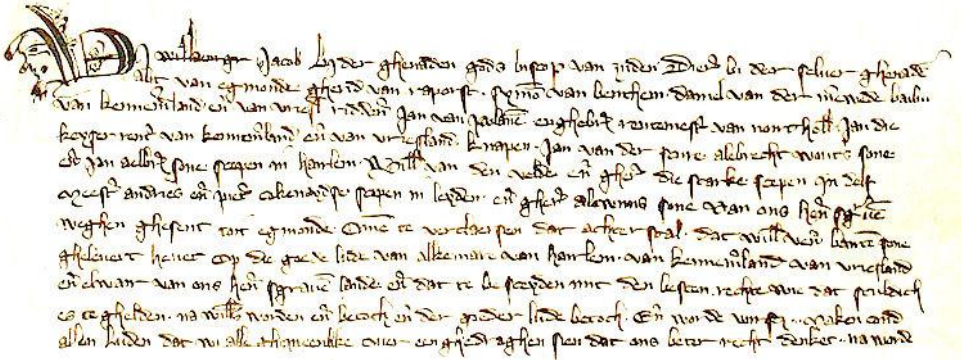 Wi willemger Jacob bi der ghenaden gods biscop van zuden Dierc bi der seluer ghenade
abt van egmonde gherid van raporst symo van benthem daniel van der merwede bailiu
van kennemland en van vriesl ridders Jan van enghebr rentemeest van north holl Jan die
keyser rent van kennemland en van vriesland knapen Jan van der aelbrecht wouts sone
en Jan aelbr sone scepen in harlem Will van den velde en gher die starke scepen in delf
meest andries en piet scepen in leyden en gher alewiins sone van ons hen sgrauen
weghen ghesent tot egmonde Ome te verclaersen dat achter stal dat will ver bauten sone
gheleuert heuet op de goede lude van alkemare van harlem van kennemland van vriesland
en elwaer van ons hen sgrauen lande en dat te besceyden mit den besten rechte wie dat sculdich
es te ghelden na wills worden en betoch en der goeder lude betoch En worde maken cond
allen luden dat wi alle ghemeenlike ouer een ghedraghen sien dat ons beter recht dencket na worde